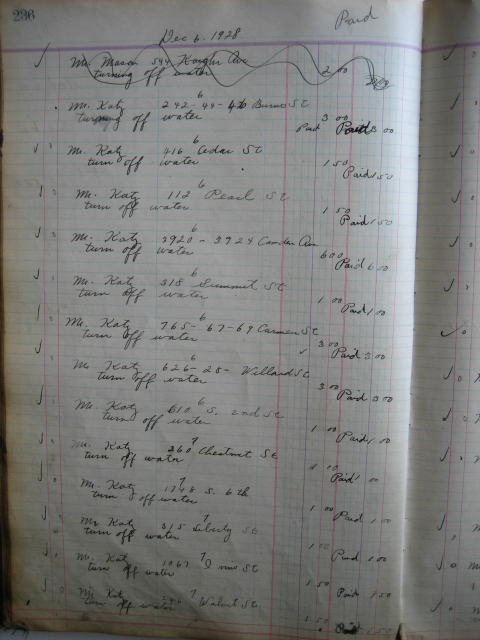 236
Paid
Dec 6. 1928
Mr. Mason 544 Ave
turning off water 2 00
6
Mr. Katz 242-44-46 Burns St
turning off water 3 00
Paid 3 00
6
Mr. Katz 416 Cedar St
turn off water 1 50
Paid 1 50
6
Mr. Katz 112 Pearl St
turn off water 1 50
Paid 1 50
6
Mr. Katz 2920-2924 Camden Ave
turn off water 6 00
Paid 6 00
6
Mr. Katz 318 Summit St
turn off water 1 00
Paid 1 00
6
Mr. Katz 765-67-69 Carmen St
turn off water 3 00
Paid 3 00
6
Mr. Katz 626-28- Willard St
turn off water 3 00
Paid 3 00
6
Mr. Katz 610 S. 2nd St
turn off water 1 00
Paid 1 00
7
Mr. Katz 260 Chestnut St
turn off water
Paid 1 00
7
Mr. Katz S. 6th
turn off water 1 00
Paid 1 00
7
Mr. Katz 315 Liberty St
turn off water 1 00
Paid 1 00
7
Mr. Katz St
turn off water 1 50
Paid 1 50
7
Mr. Katz Walnut St
turn off water 1 50
Paid 1 50